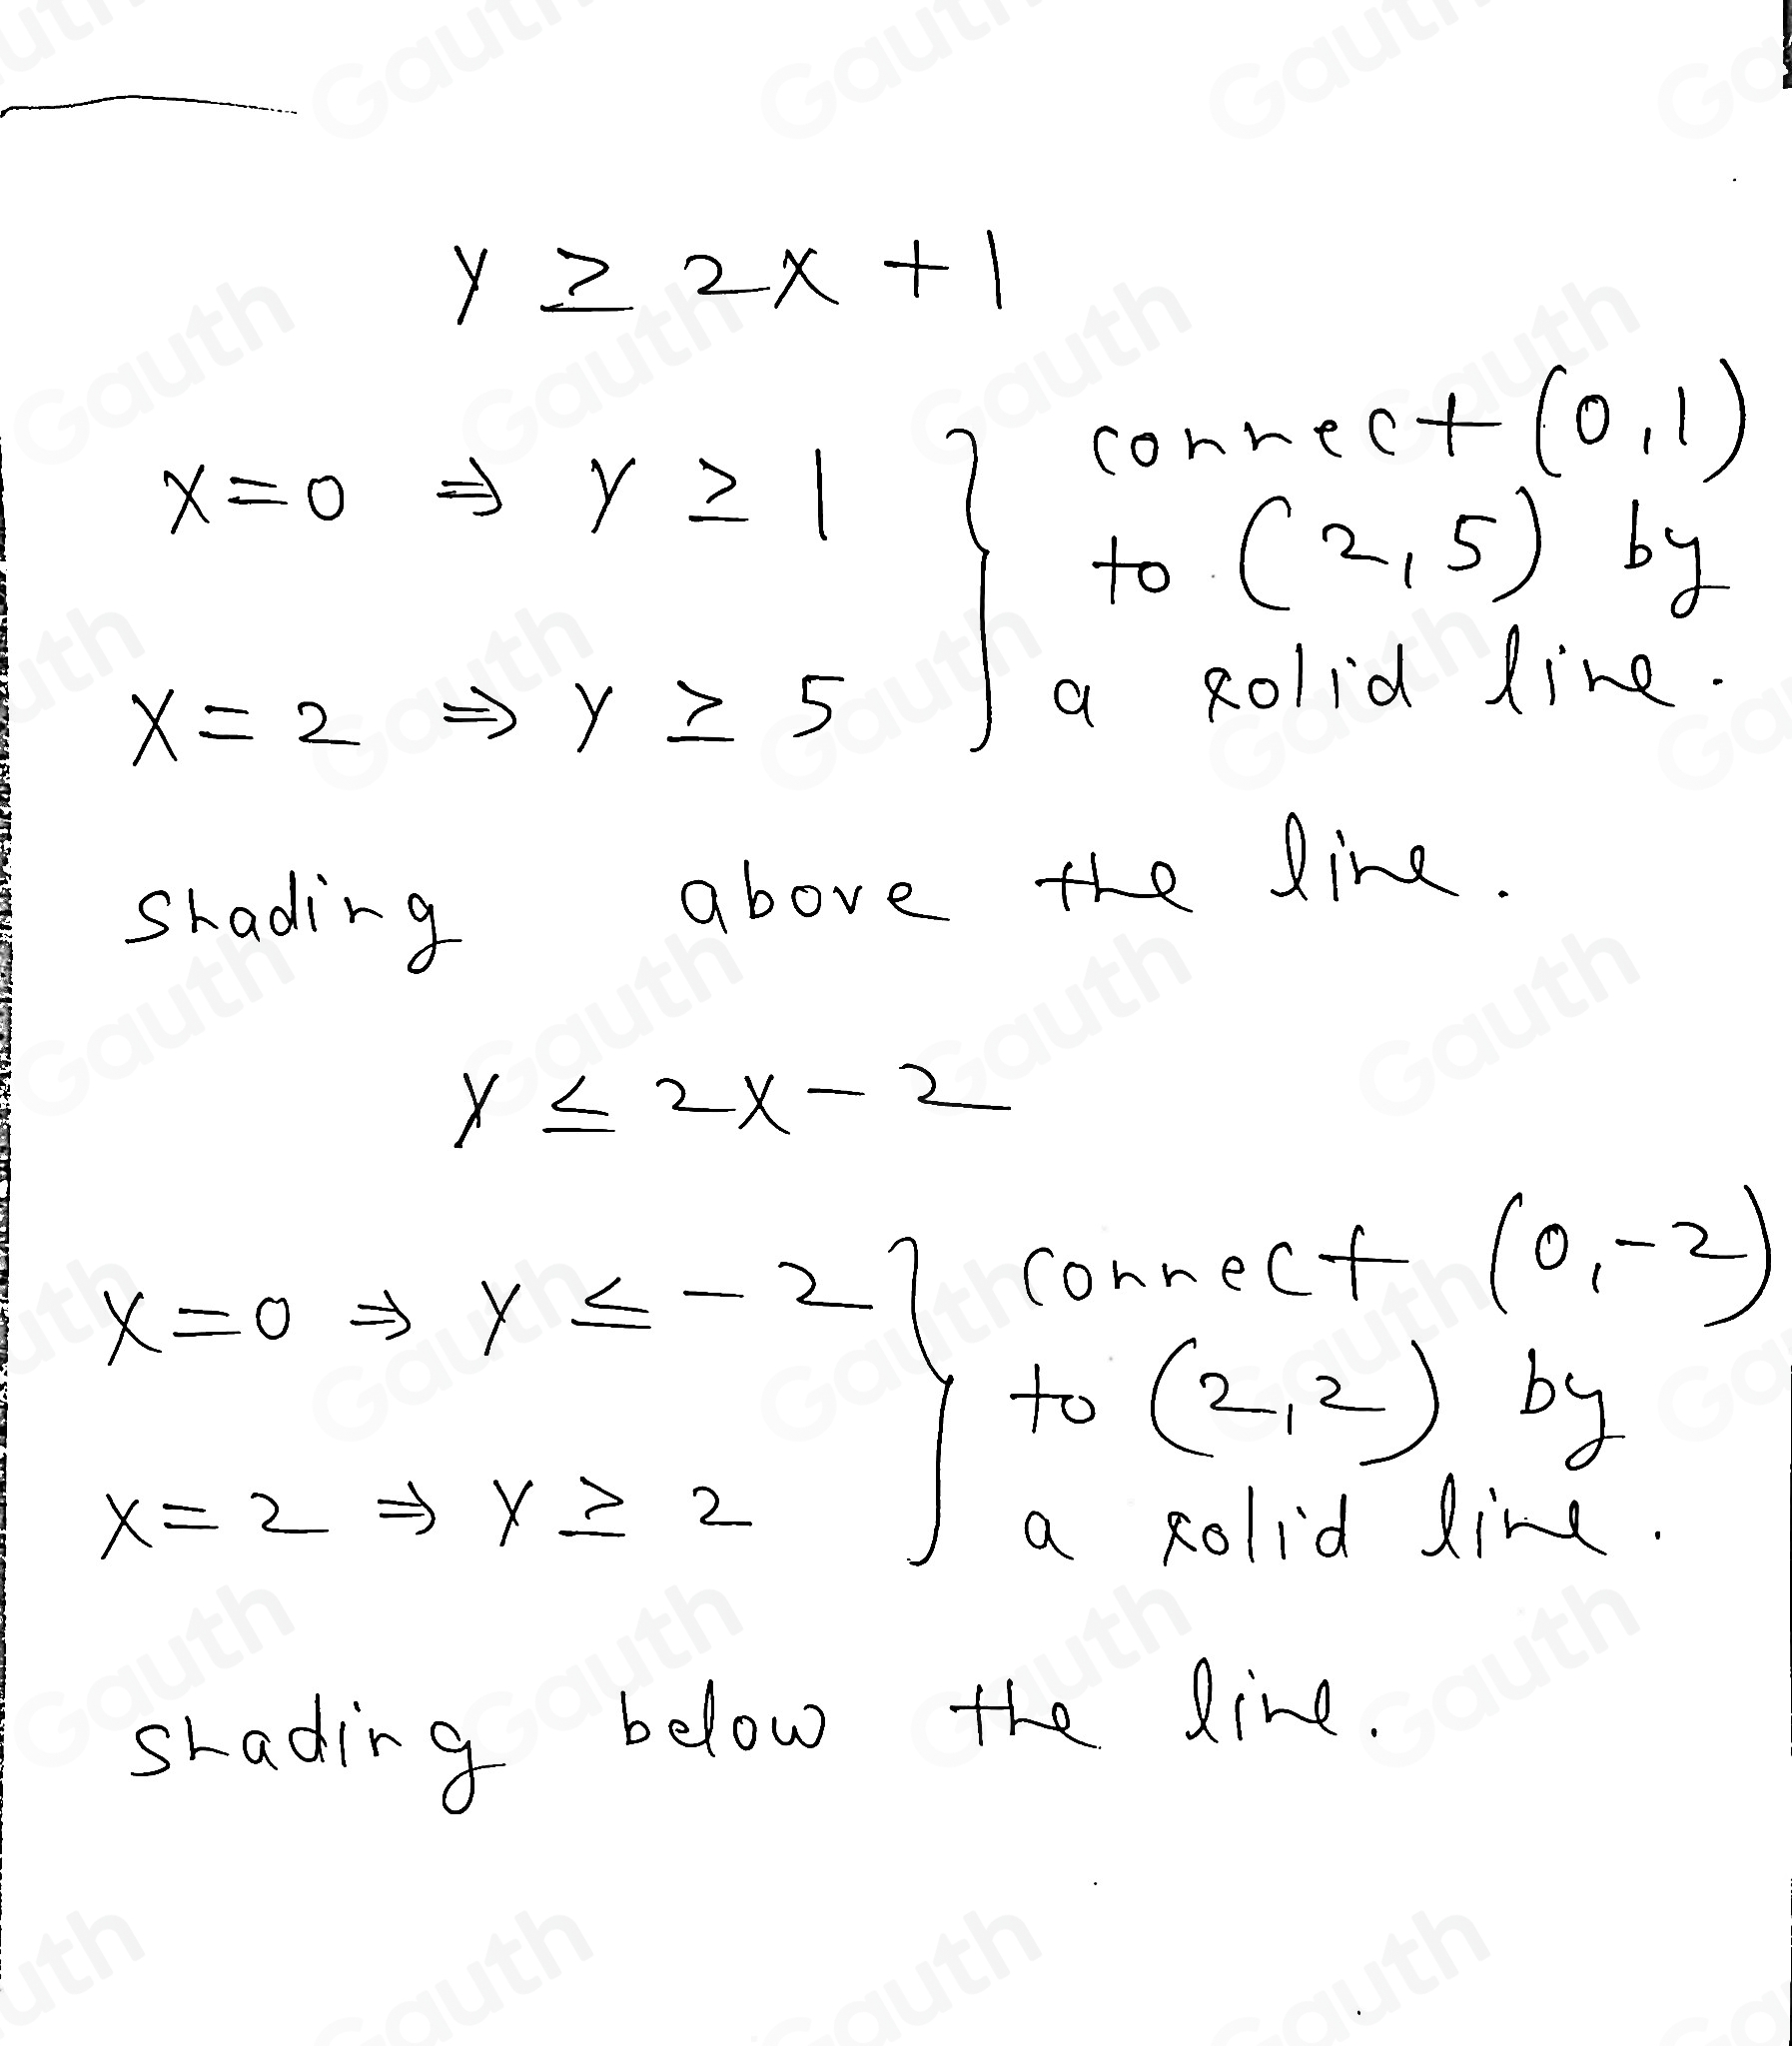 y ≥ 2x + 1
x = 0 ⇒ y ≥ 1 } connect (0,1)
to (2,5) by
x = 2 ⇒ y ≥ 5 a solid line.
shading above the line.
y ≤ 2x - 2
x = 0 ⇒ y ≤ -2 } connect (0,-2)
to (2,2) by
x = 2 ⇒ y ≥ 2 a solid line.
shading below the line.
Gauth